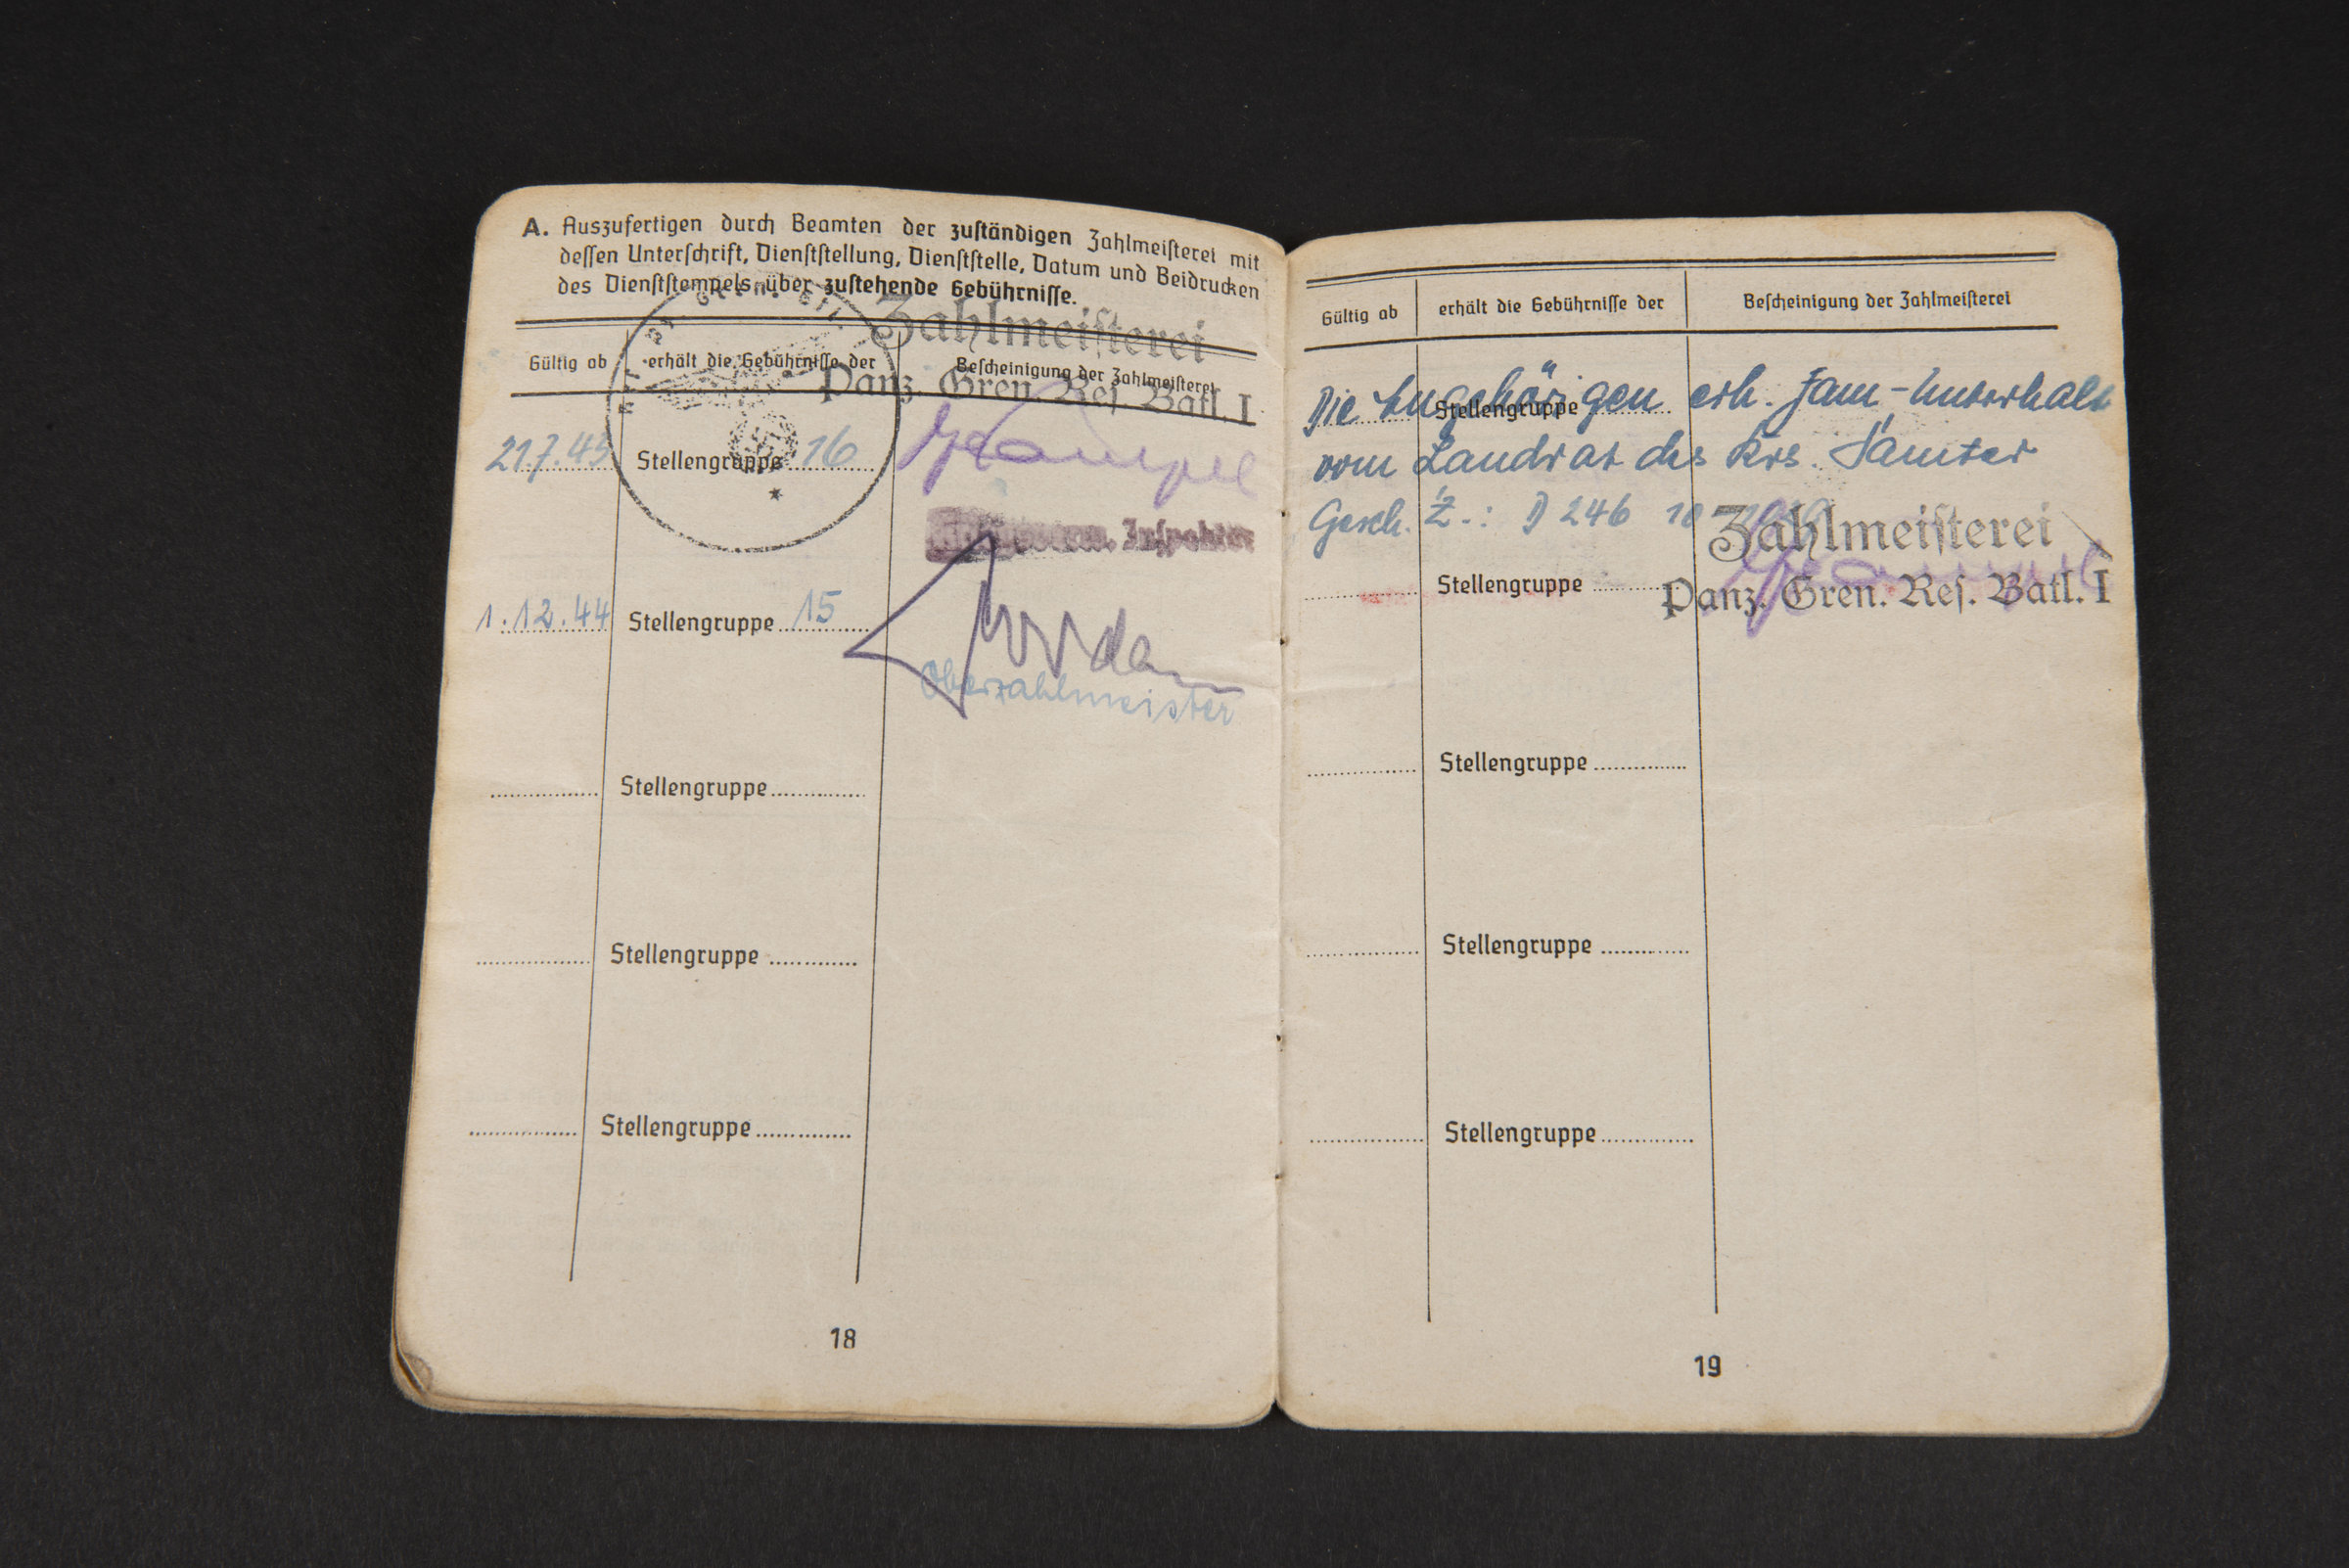 A. Auszufertigen durch Beamten der zuständigen Zahlmeisterei mit
dessen Unterschrift, Dienststellung, Dienststelle, Datum und Beidrucken
des Dienststempels über zustehende Gebührnisse.
Zahlmeisterei
Panz. Gren. Res. Batl. I
Gültig ab erhält die Gebührnisse der Bescheinigung der Zahlmeisterei
21.7.43 Stellengruppe 16
Inspektor
1.12.44 Stellengruppe 15
Oberzahlmeister
Stellengruppe
Stellengruppe
Stellengruppe
18
Gültig ab erhält die Gebührnisse der Bescheinigung der Zahlmeisterei
Die Angehörigen erh. Fam-Unterhalt
Stellengruppe
vom Landrat des Krs. Samter
Gesch. Z.: D 246 10
Zahlmeisterei
Stellengruppe
Panz. Gren. Res. Batl. I
Stellengruppe
Stellengruppe
Stellengruppe
19